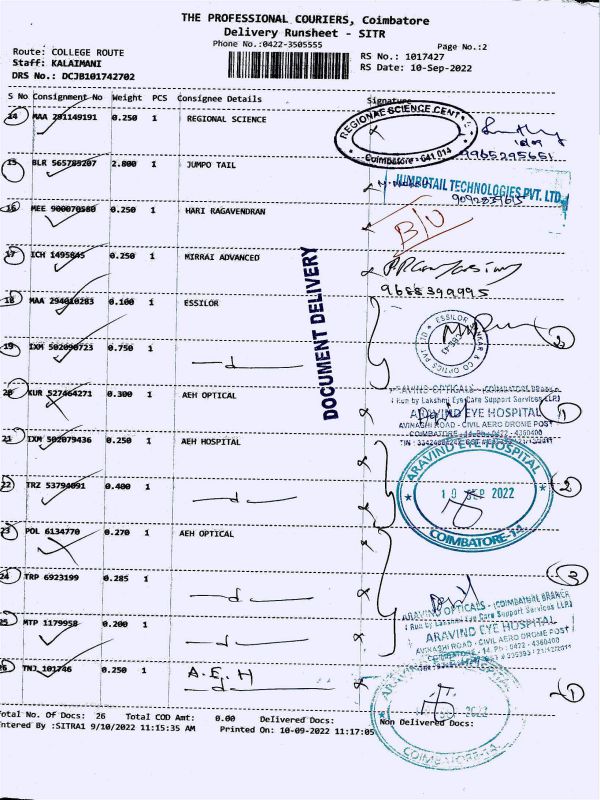 THE PROFESSIONAL COURIERS, Coimbatore
Delivery Runsheet - SITR
Phone No.:0422-3505555
Page No.:2
Route: COLLEGE ROUTE
Staff: KALAIMANI
DRS No.: DCJB101742702
RS No.: 1017427
RS Date: 10-Sep-2022
S No Consignment No Weight PCS Consignee Details Signature
14 MAA 291149191 0.250 1 REGIONAL SCIENCE
REGIONAL SCIENCE CENT
Coimbatore - 641 014
9965295651
15 BLR 565785207 2.800 1 JUMPO TAIL
JUMBOTAIL TECHNOLOGIES PVT. LTD.
16 MEE 900070580 0.250 1 HARI RAGAVENDRAN
B/U
17 ICH 1495845 0.250 1 MIRRAI ADVANCED
9688399995
DOCUMENT DELIVERY
18 MAA 294010283 0.100 1 ESSILOR
ESSILOR
& CO OPTICS PVT LTD
19 IXM 502090723 0.750 1 d
2
20 KUR 527464271 0.300 1 AEH OPTICAL
ARAVIND OPTICALS - COIMBATORE BRANCH
( Run by Lakshmi Eye Care Support Services LLP)
ARAVIND EYE HOSPITAL
AVINASHI ROAD - CIVIL AERO DROME POST
COIMBATORE - 14. Ph : 0422 - 4360400
1
21 IXM 502079436 0.250 1 AEH HOSPITAL
ARAVIND EYE HOSPITAL
10 SEP 2022
COIMBATORE-14
22 TRZ 53794091 0.400 1 d
2
23 POL 6134770 0.270 1 AEH OPTICAL
24 TRP 6923199 0.285 1 d
3
ARAVIND OPTICALS - COIMBATORE BRANCH
( Run by Lakshmi Eye Care Support Services LLP)
ARAVIND EYE HOSPITAL
AVINASHI ROAD - CIVIL AERO DROME POST
COIMBATORE - 14. Ph : 0422 - 4360400
25 MTP 1179958 0.200 1 d
26 TNJ 101746 0.250 1 A.E.H
d
1
ARAVIND EYE HOSPITAL
SEP 2022
COIMBATORE-14
otal No. Of Docs: 26 Total COD Amt: 0.00 Delivered Docs: Non Delivered Docs:
ntered By :SITRA1 9/10/2022 11:15:35 AM Printed On: 10-09-2022 11:17:05